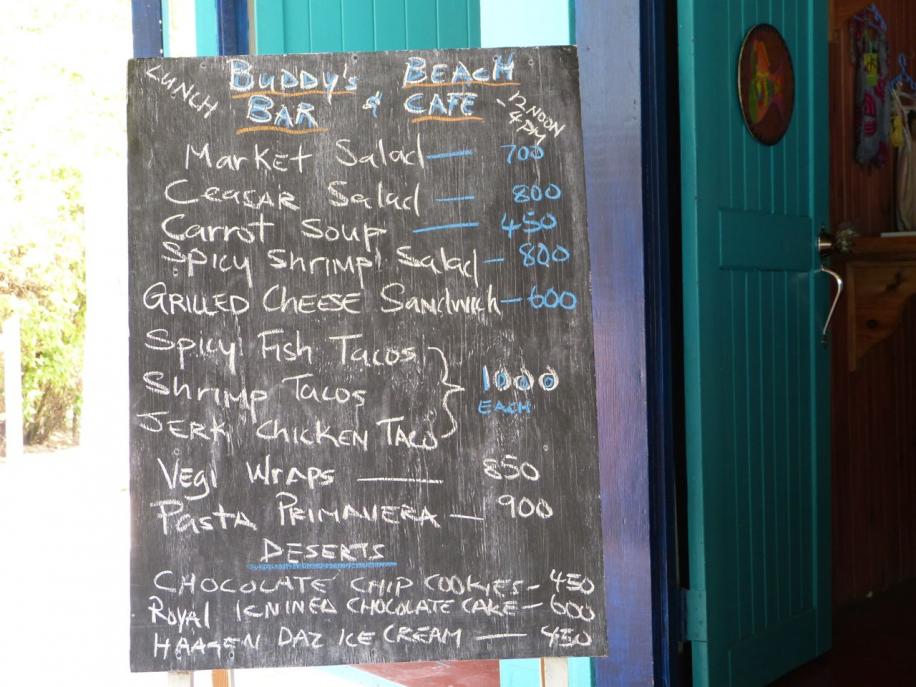 LUNCH
BUDDY'S BEACH
BAR & CAFE
-12 NOON
4 PM
Market Salad — 700
Ceasar Salad — 800
Carrot Soup — 450
Spicy Shrimp Salad — 800
GRILLED CHEESE Sandwich — 600
Spicy Fish Tacos
Shrimp Tacos
JERK CHICKEN TACO
1000
EACH
Vegi Wraps — 850
Pasta PRIMAVERA — 900
DESERTS
CHOCOLATE CHIP COOKIES - 450
ROYAL CHOCOLATE CAKE - 600
HAAGEN DAZ ICE CREAM — 450